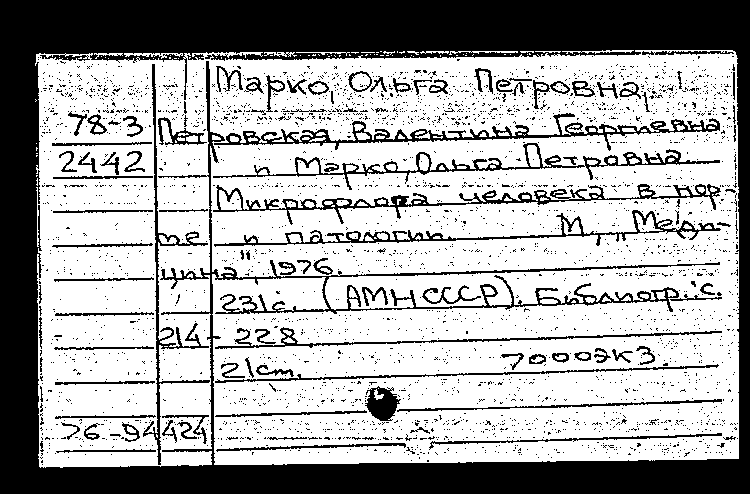 Марко, Ольга Петровна,
78-3 Петровская, Валентина Георгиевна
2442 и Марко, Ольга Петровна.
Микрофлора человека в нор-
ме и патологии. М., „Меди-
цина", 1976.
231с. (АМН СССР). Библиогр.: с.
214-228.
21cm. 7000экз.
76-94424